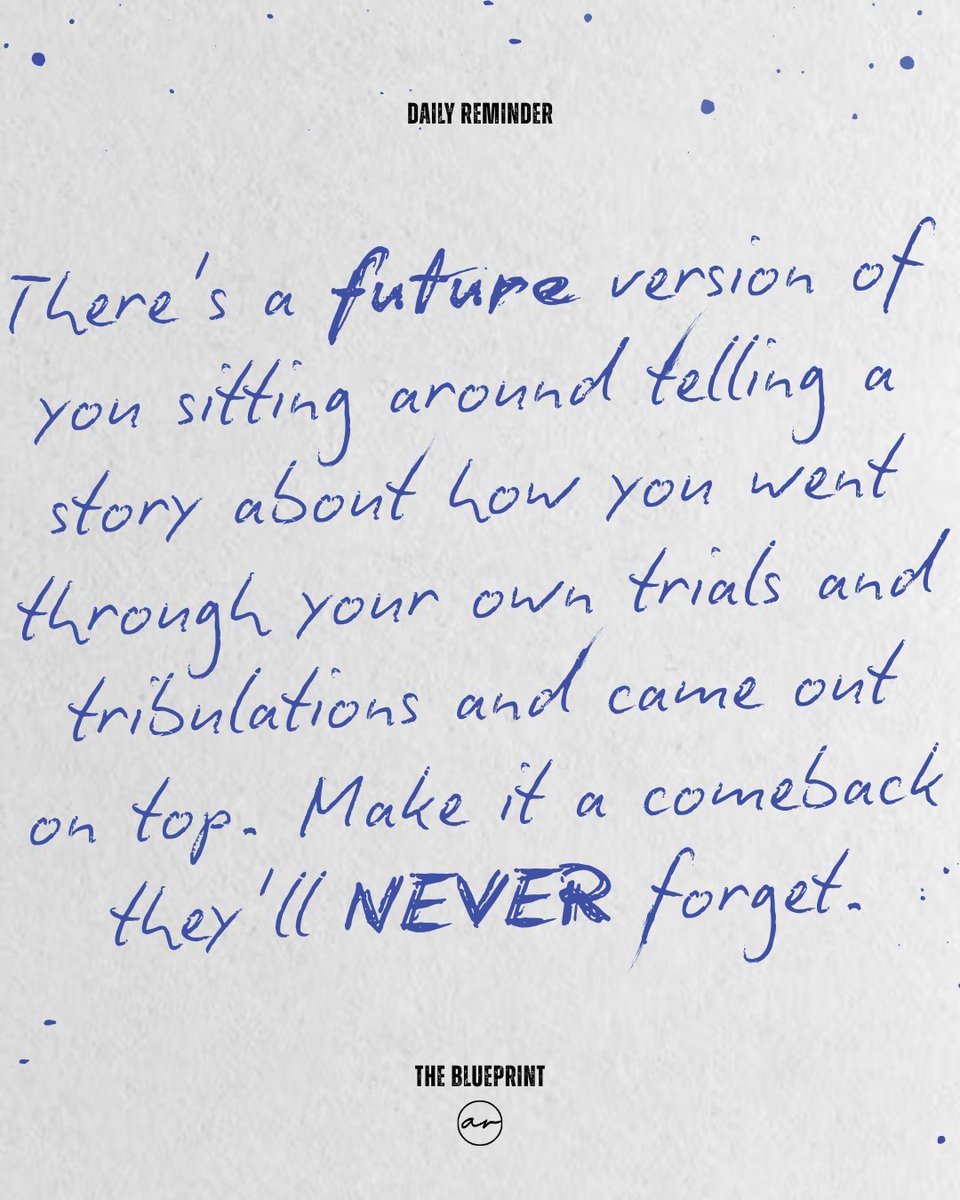 DAILY REMINDER
There's a future version of
you sitting around telling a
story about how you went
through your own trials and
tribulations and came out
on top. Make it a comeback
they'll NEVER forget.
THE BLUEPRINT
ar